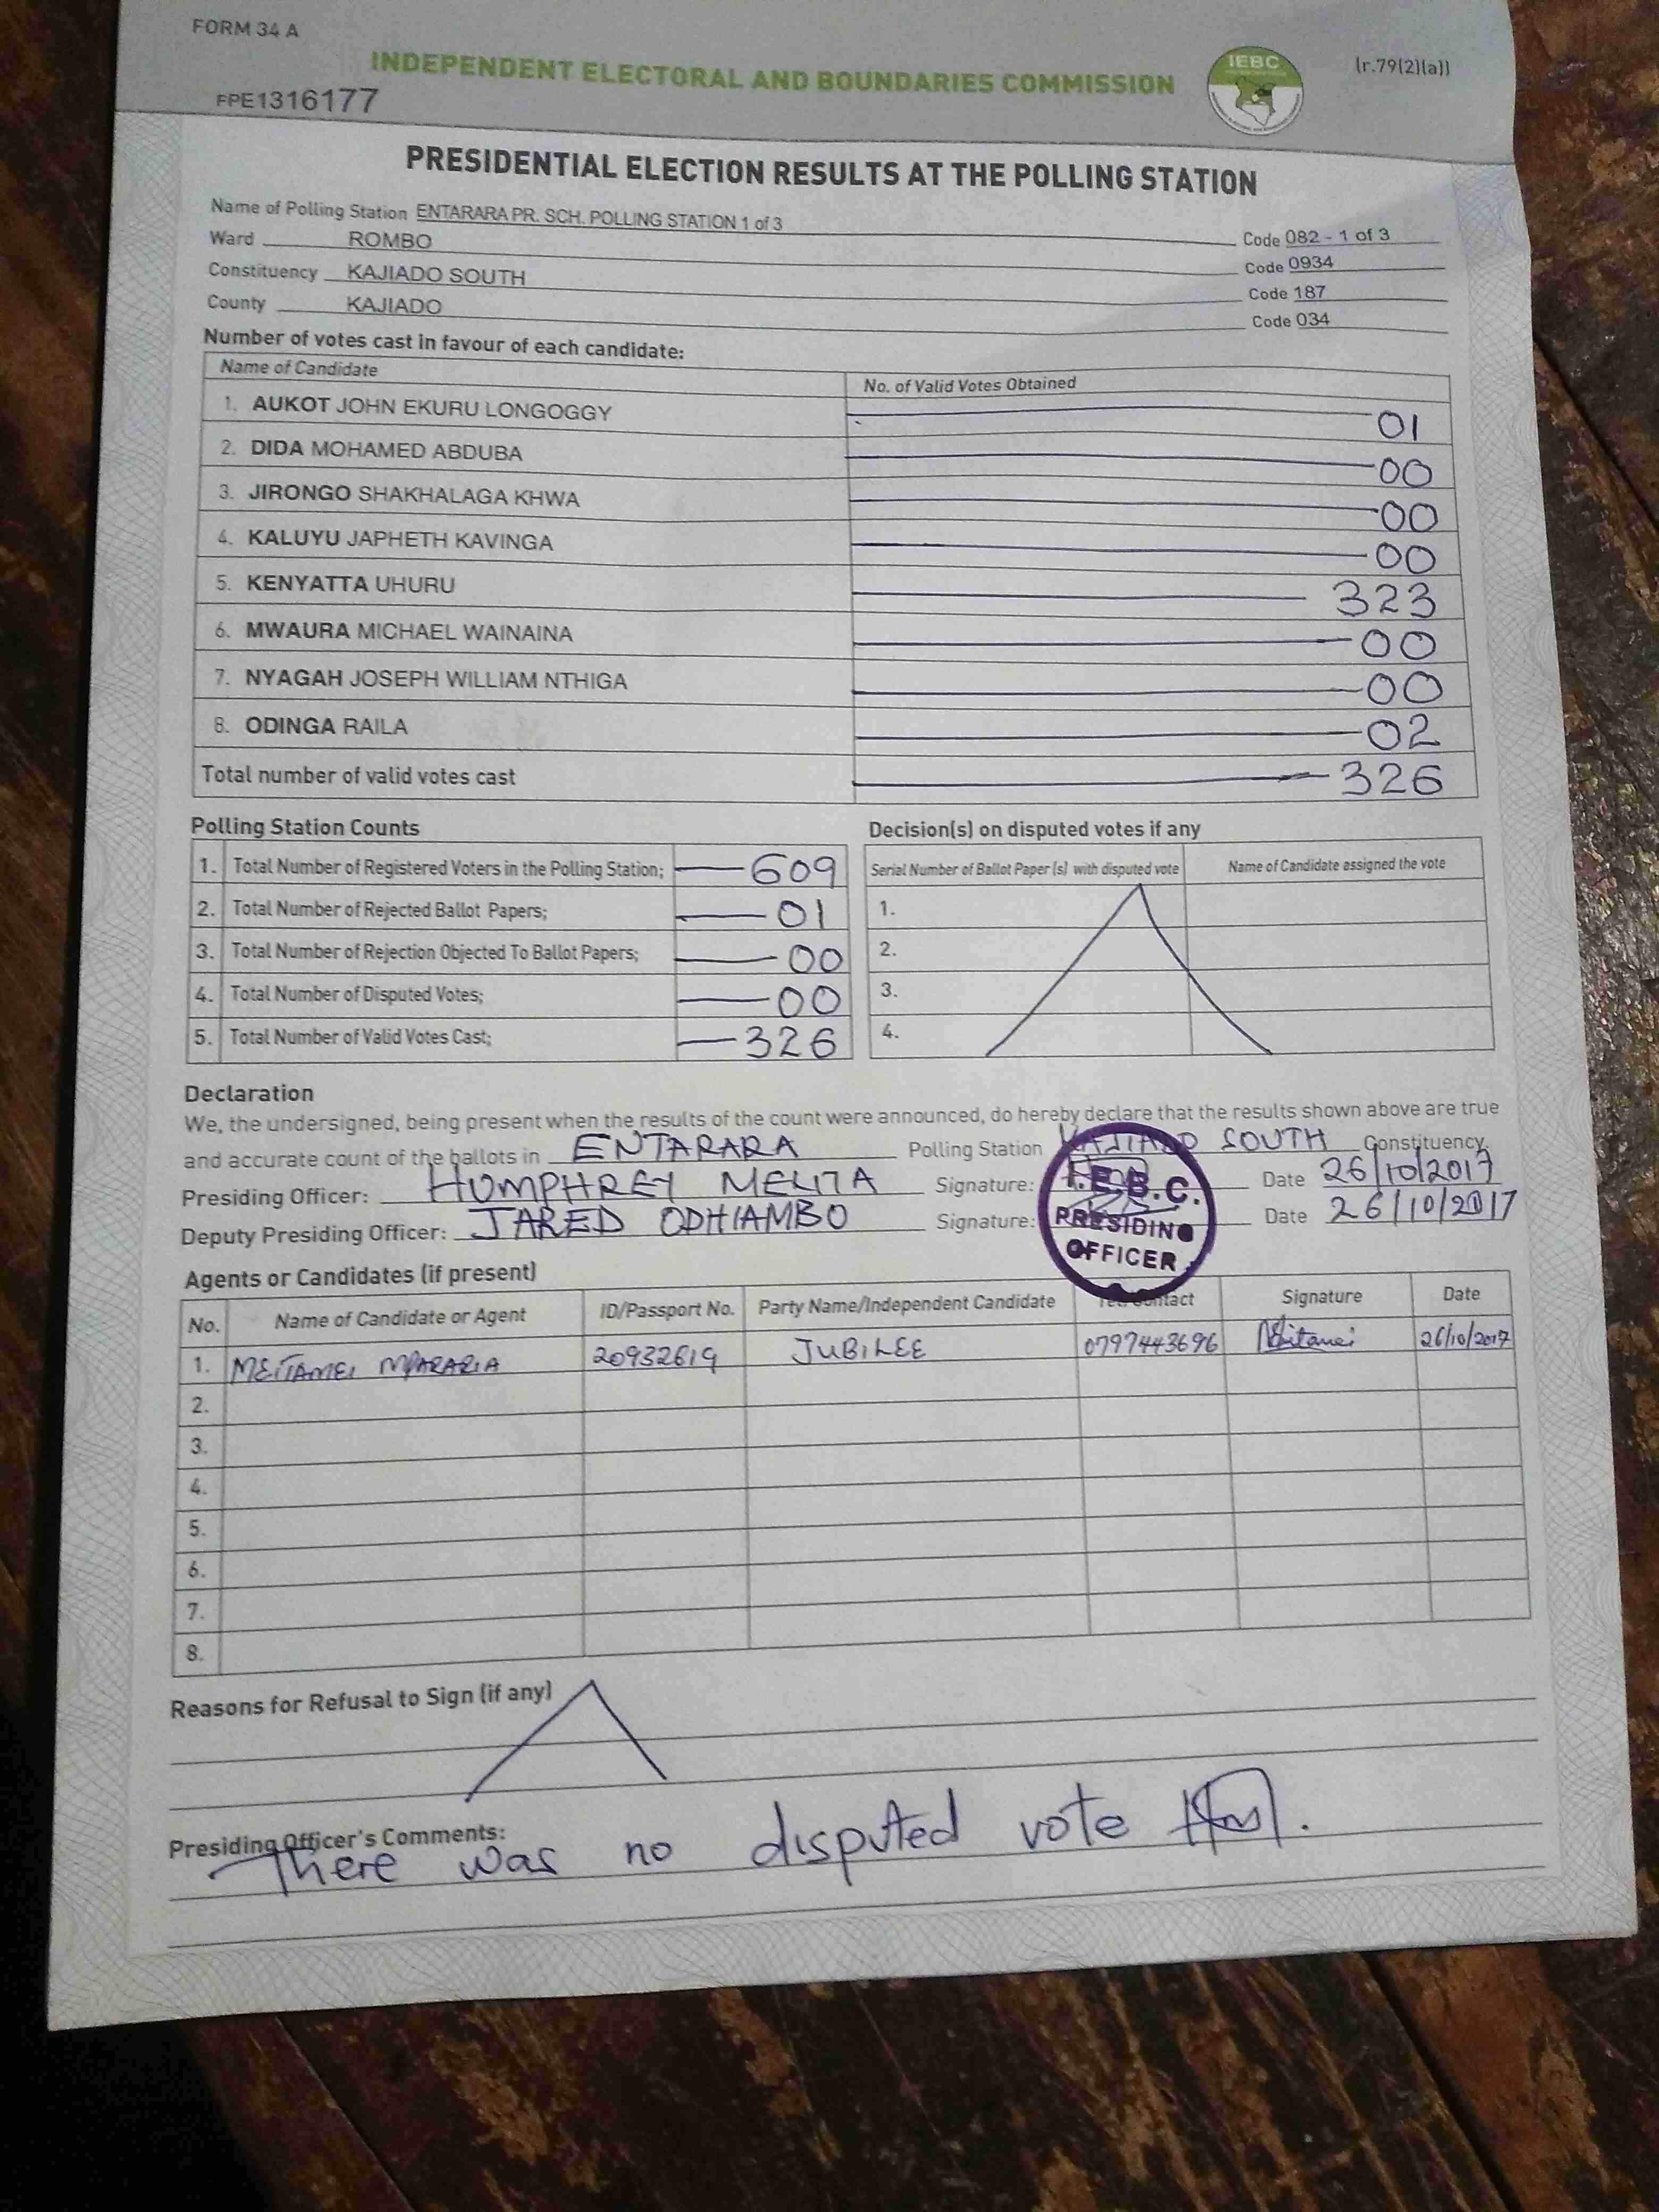 FORM 34 A
INDEPENDENT ELECTORAL AND BOUNDARIES COMMISSION
IEBC
(r.79(2)(a))
FPE1316177
PRESIDENTIAL ELECTION RESULTS AT THE POLLING STATION
Name of Polling Station ENTARARA PR. SCH. POLLING STATION 1 of 3 Code 082 - 1 of 3
Ward ROMBO Code 0934
Constituency KAJIADO SOUTH Code 187
County KAJIADO Code 034
Number of votes cast in favour of each candidate:
Name of Candidate No. of Valid Votes Obtained
1. AUKOT JOHN EKURU LONGOGGY 01
2. DIDA MOHAMED ABDUBA 00
3. JIRONGO SHAKHALAGA KHWA 00
4. KALUYU JAPHETH KAVINGA 00
5. KENYATTA UHURU 323
6. MWAURA MICHAEL WAINAINA 00
7. NYAGAH JOSEPH WILLIAM NTHIGA 00
8. ODINGA RAILA 02
Total number of valid votes cast 326
Polling Station Counts
1. Total Number of Registered Voters in the Polling Station; 609
2. Total Number of Rejected Ballot Papers; 01
3. Total Number of Rejection Objected To Ballot Papers; 00
4. Total Number of Disputed Votes; 00
5. Total Number of Valid Votes Cast; 326
Decision(s) on disputed votes if any
Serial Number of Ballot Paper (s) with disputed vote Name of Candidate assigned the vote
1.
2.
3.
4.
Declaration
We, the undersigned, being present when the results of the count were announced, do hereby declare that the results shown above are true
and accurate count of the ballots in ENTARARA Polling Station KAJIADO SOUTH Constituency.
Presiding Officer: HUMPHREY MELITA Signature: Date 26/10/2017
Deputy Presiding Officer: JARED ODHIAMBO Signature: Date 26/10/2017
I.E.B.C.
PRESIDING
OFFICER
Agents or Candidates (if present)
No. Name of Candidate or Agent ID/Passport No. Party Name/Independent Candidate Contact Signature Date
1. MEITAMEI MPARARIA 20932619 JUBILEE 0797443696 Meitamei 26/10/2017
2.
3.
4.
5.
6.
7.
8.
Reasons for Refusal to Sign (if any)
Presiding Officer's Comments:
There was no disputed vote